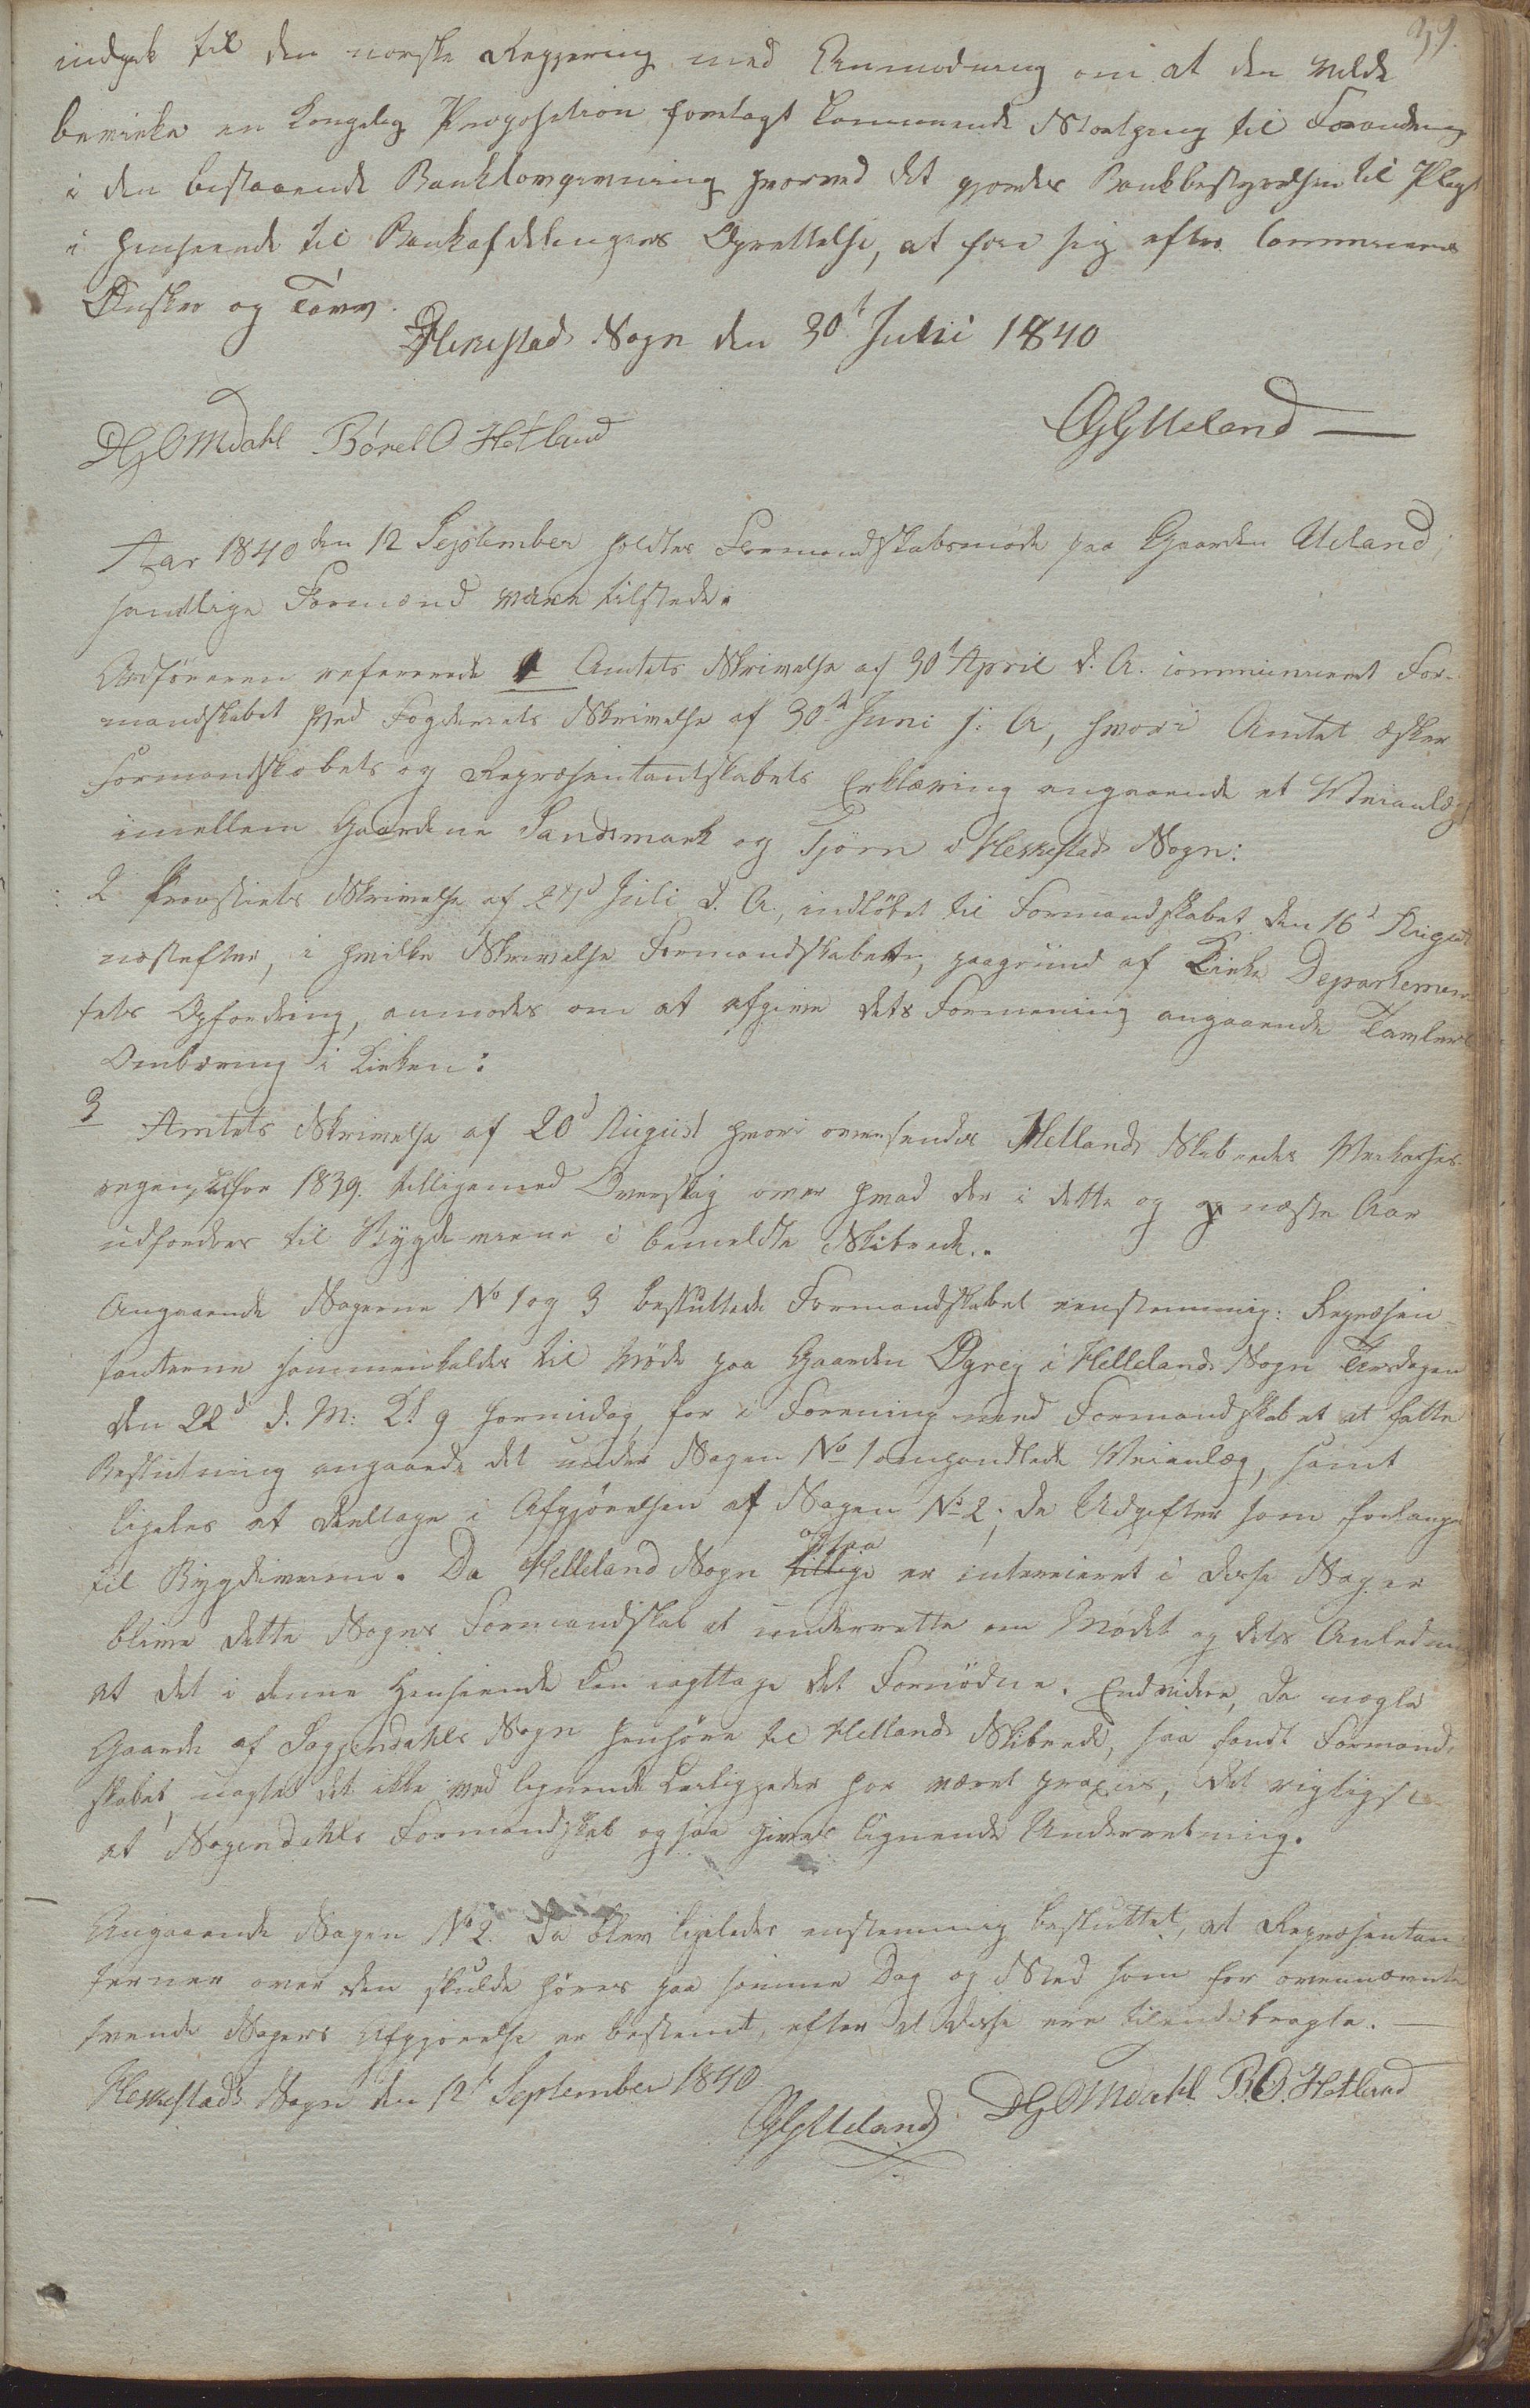 39.
indgik til den norske Regjering med Anmodning om at den vilde
bevirke en kongelig Proposition forelagt kommende Storthing til Forandring
i den bestaaende Banklovgivning hvorved det gjordes Bankbestyrelsen til Pligt
i Henseende til Bankafdelingers Oprettelse, at føie sig efter Communernes
Ønsker og Tarv.
Heskestads Sogn den 30t Julii 1840
OGUeland
DGOmdahl Børel O Hetland
Aar 1840 den 12 September holdtes Formandskabsmøde paa Gaarden Ueland,
samtlige Formænd vare tilstede.
Ordføreren refererede 1 Amtets Skrivelse af 30t April d. A. communiceret For-
mandskabet ved Fogderiets Skrivelse af 30t Juni s: A, hvori Amtet æsker
Formandskabets og Repræsentantskabets Erklæring angaaende et Veianlæg
imellem Gaardene Sandsmark og Tjørn i Heskestads Sogn:
2 Provstiets Skrivelse af 27d Juli d. A., indløbet til Formandskabet den 16d August
næstefter, i hvilke Skrivelse Formandskabet, paagrund af Kirke Departemen-
tets Opfordring, anmodes om at afgive dets Formening angaaende Tavlers
Ombæring i Kirken:
3 Amtets Skrivelse af 20d August hvori oversendes Hellands Skibredes Veikasses
regenskab for 1839. tilligemed Overslag over hvad der i dette og næste Aar
udfordres til Bygdeveiene i bemeldte Skibrede.
Angaaende Sagerne No 1 og 3 besluttede Formandskabet eenstemmig: Repræsen-
tanterne sammenkaldes til Møde paa Gaarden Øgrey i Hellelands Sogn Tirsdagen
den 22d d. M: Kl 9 formidag, for i Forening med Formandskabet at fatte
Beslutning angaaende det under Sagen No 1 omhandlede Veianlæg, samt
ligeles at deeltage i Afgjørelsen af Sagen No 2, de Udgifter som forlanges
til Bygdeveiene. Da Helleland Sogn tillige ogsaa er interesseret i disse Sager
blive dette Sogns Formandskab at underrette om Mødet og dets Anledning
at det i denne Henseende kan iagttage det Fornødne. Endvidere, da nogle
Gaarde af Soggendahls Sogn henhøre til Hellands Skibrede, saa fandt Formand-
skabet, uagtet det ikke ved lignende Leiligheder har været praxis, det rigtigst
at Sogendahls Formandskab ogsaa gives lignende Underretning.
Angaaende Sagen No 2. Da blev ligeledes enstemmig besluttet, at Repræsentan-
terner over den skulde høres paa samme Dag og Sted som for ovennævnte
tvende Sagers Afgjørelse er bestemt, efter at disse ere tilendebragte.
Heskestads Sogn den 12t September 1840
OGUeland DGOmdahl B.O.Hetland